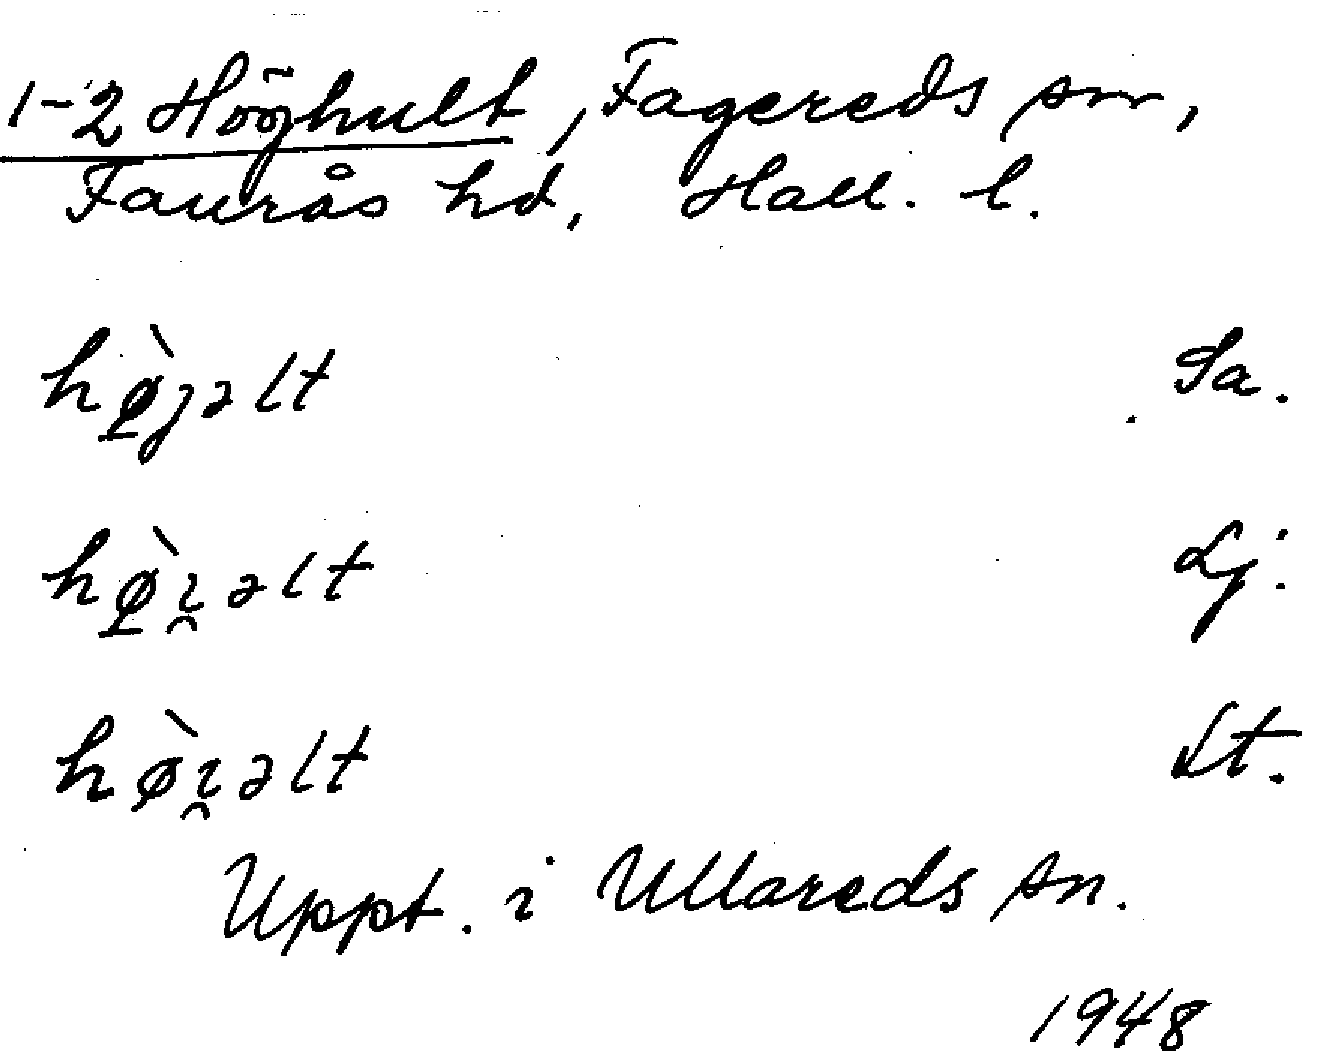 1-2 Höghult, Fagereds sn,
Faurås hd, Hall. l.
hø̱̀jəlt Sa.
hø̱̀ı̯əlt Lj.
hø̀ı̯əlt Lt.
Uppt. i Ullareds sn.
1948